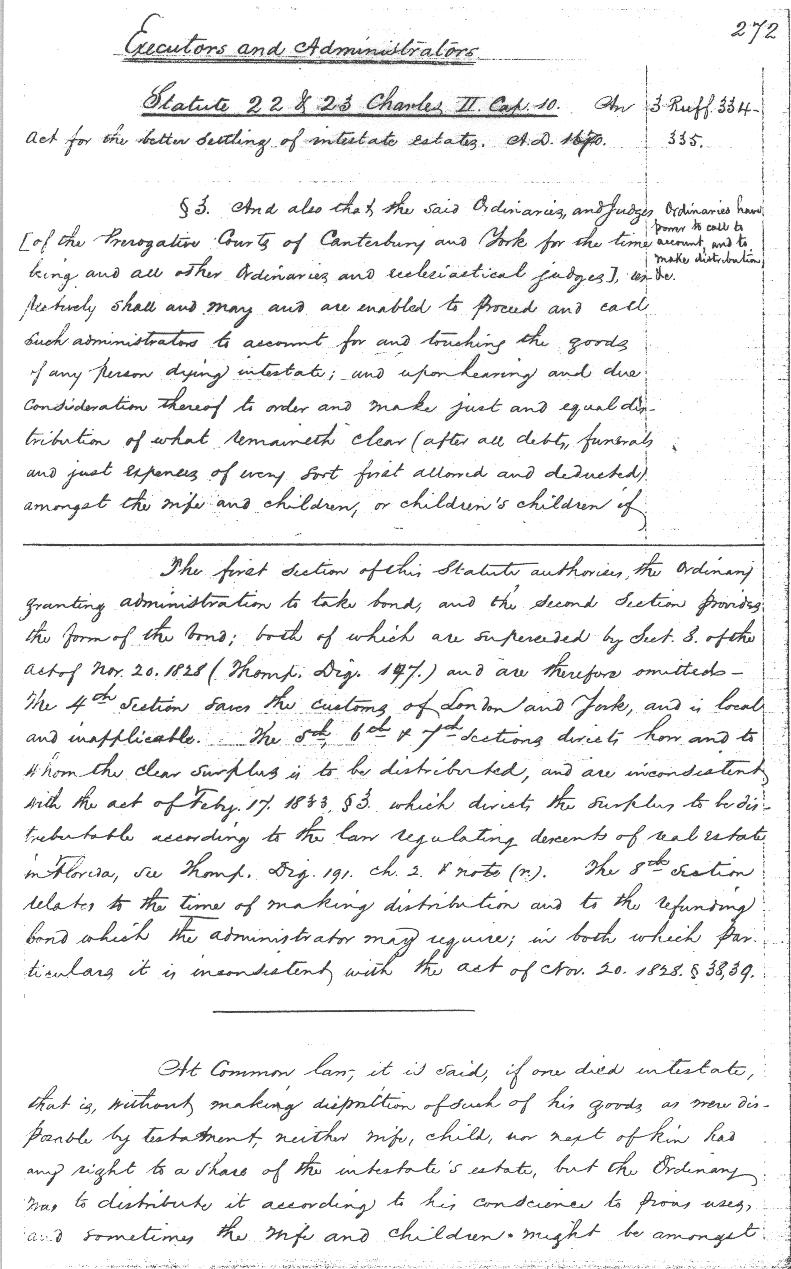 272
Executors and Administrators
Statute 22 & 23 Charles II. Cap. 10. An
act for the better settling of intestate estates. A.D. 1670.
3 Ruff. 334-
335.
§ 3. And also that the said Ordinaries, and Judges
[of the Prerogative Courts of Canterbury and York for the time
being and all other Ordinaries and ecclesiastical judges], res-
pectively shall and may and are enabled to proceed and call
such administrators to account for and touching the goods
of any person dying intestate; and upon hearing and due
consideration thereof to order and make just and equal dis-
tribution of what remaineth clear (after all debts, funerals
and just expences of every sort first allowed and deducted)
amongst the wife and children, or children's children if
Ordinaries have
power to call to
account, and to
make distribution
&c.
The first section of this Statute authorises, the Ordinary
granting administration to take bond, and the second Section provides
the form of the bond; both of which are superceded by Sect. 8. of the
act of Nov. 20. 1828 (Thomp. Dig. 197.) and are therefore omitted-
The 4th Section saves the customs of London and York, and is local
and inapplicable. The 5th, 6th & 7th Sections directs how and to
whom the clear surplus is to be distributed, and are inconsistent
with the act of Feby. 17. 1833 § 3. which directs the surplus to be dis-
tributable according to the law regulating descents of real estate
in Florida, see Thomp. Dig. 191. ch. 2. & note (n). The 8th Section
relates to the time of making distribution and to the refunding
bond which the administrator may require; in both which par-
ticulars it is inconsistent with the act of Nov. 20. 1828. § 38, 39.
At Common law, it is said, if one died intestate,
that is, without making disposition of such of his goods as were dis-
posable by testament, neither wife, child, nor next of kin had
any right to a share of the intestate's estate, but the Ordinary
was to distribute it according to his conscience to pious uses,
and sometimes the wife and children might be amongst